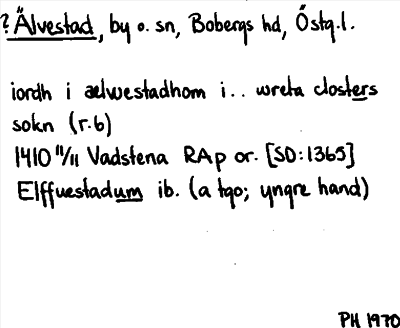 ? Älvestad, by o. sn, Bobergs hd, Östg.l.
iordh i ælwestadhom i .. wreta closters
sokn (r.6)
1410 11/11 Vadstena RAp or. [SD:1365]
Elffuestadum ib. (a tgo; yngre hand)
PH 1970